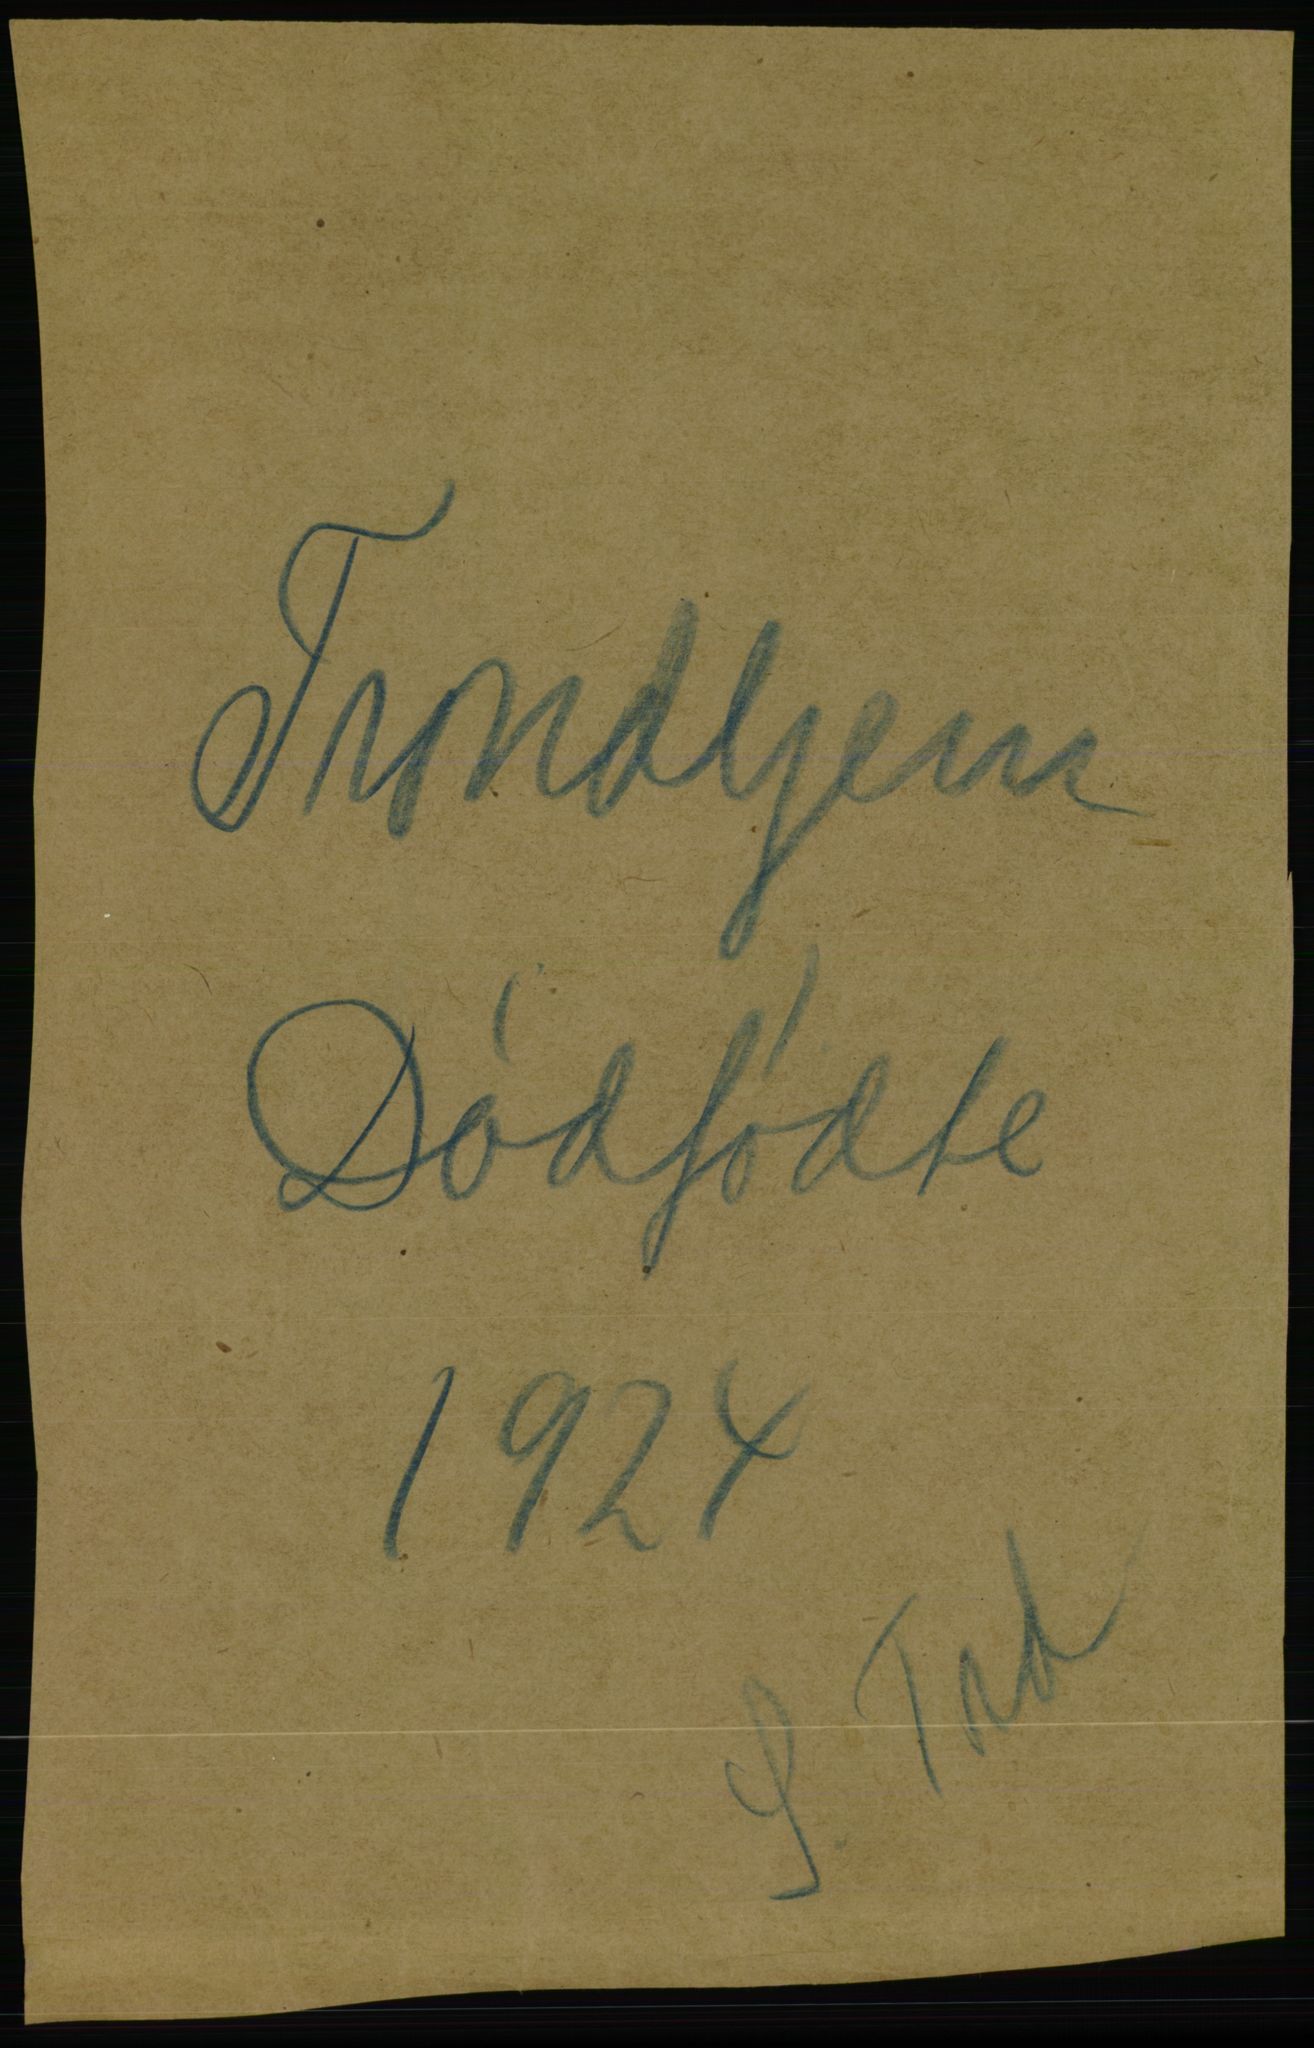 Trondhjem
Dødfødte
1924
S. Trd